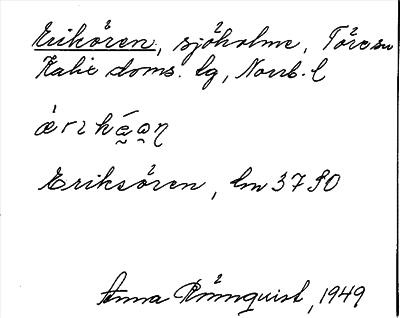 Erikören, sjöholme, Töre sn
Kalix doms. lg, Norrb. l
Eriksören, lm 3790
Anna Rönnquist, 1949